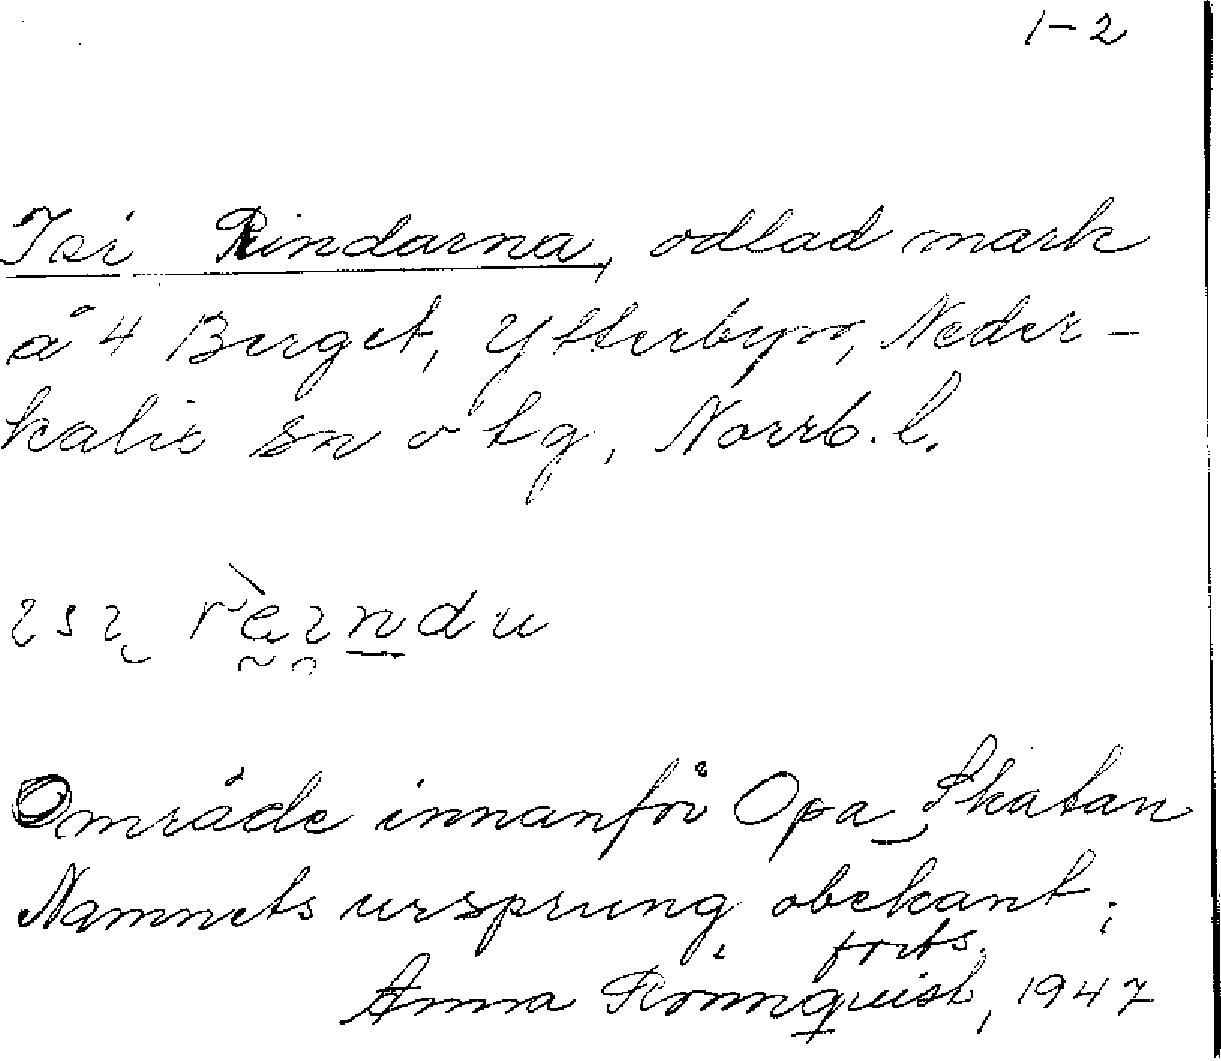 1-2
Isi Rindarna, odlad mark
å 4 Berget, Ytterbyn, Neder-
kalix sn o tg, Norrb. l.
Område innanför Opa Skatan
Namnets ursprung obekant;
forts.
Anna Rönnquist, 1947